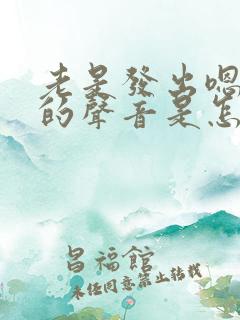 老是發出嗯
的聲音是怎
昌福館
未任同意禁止轉載